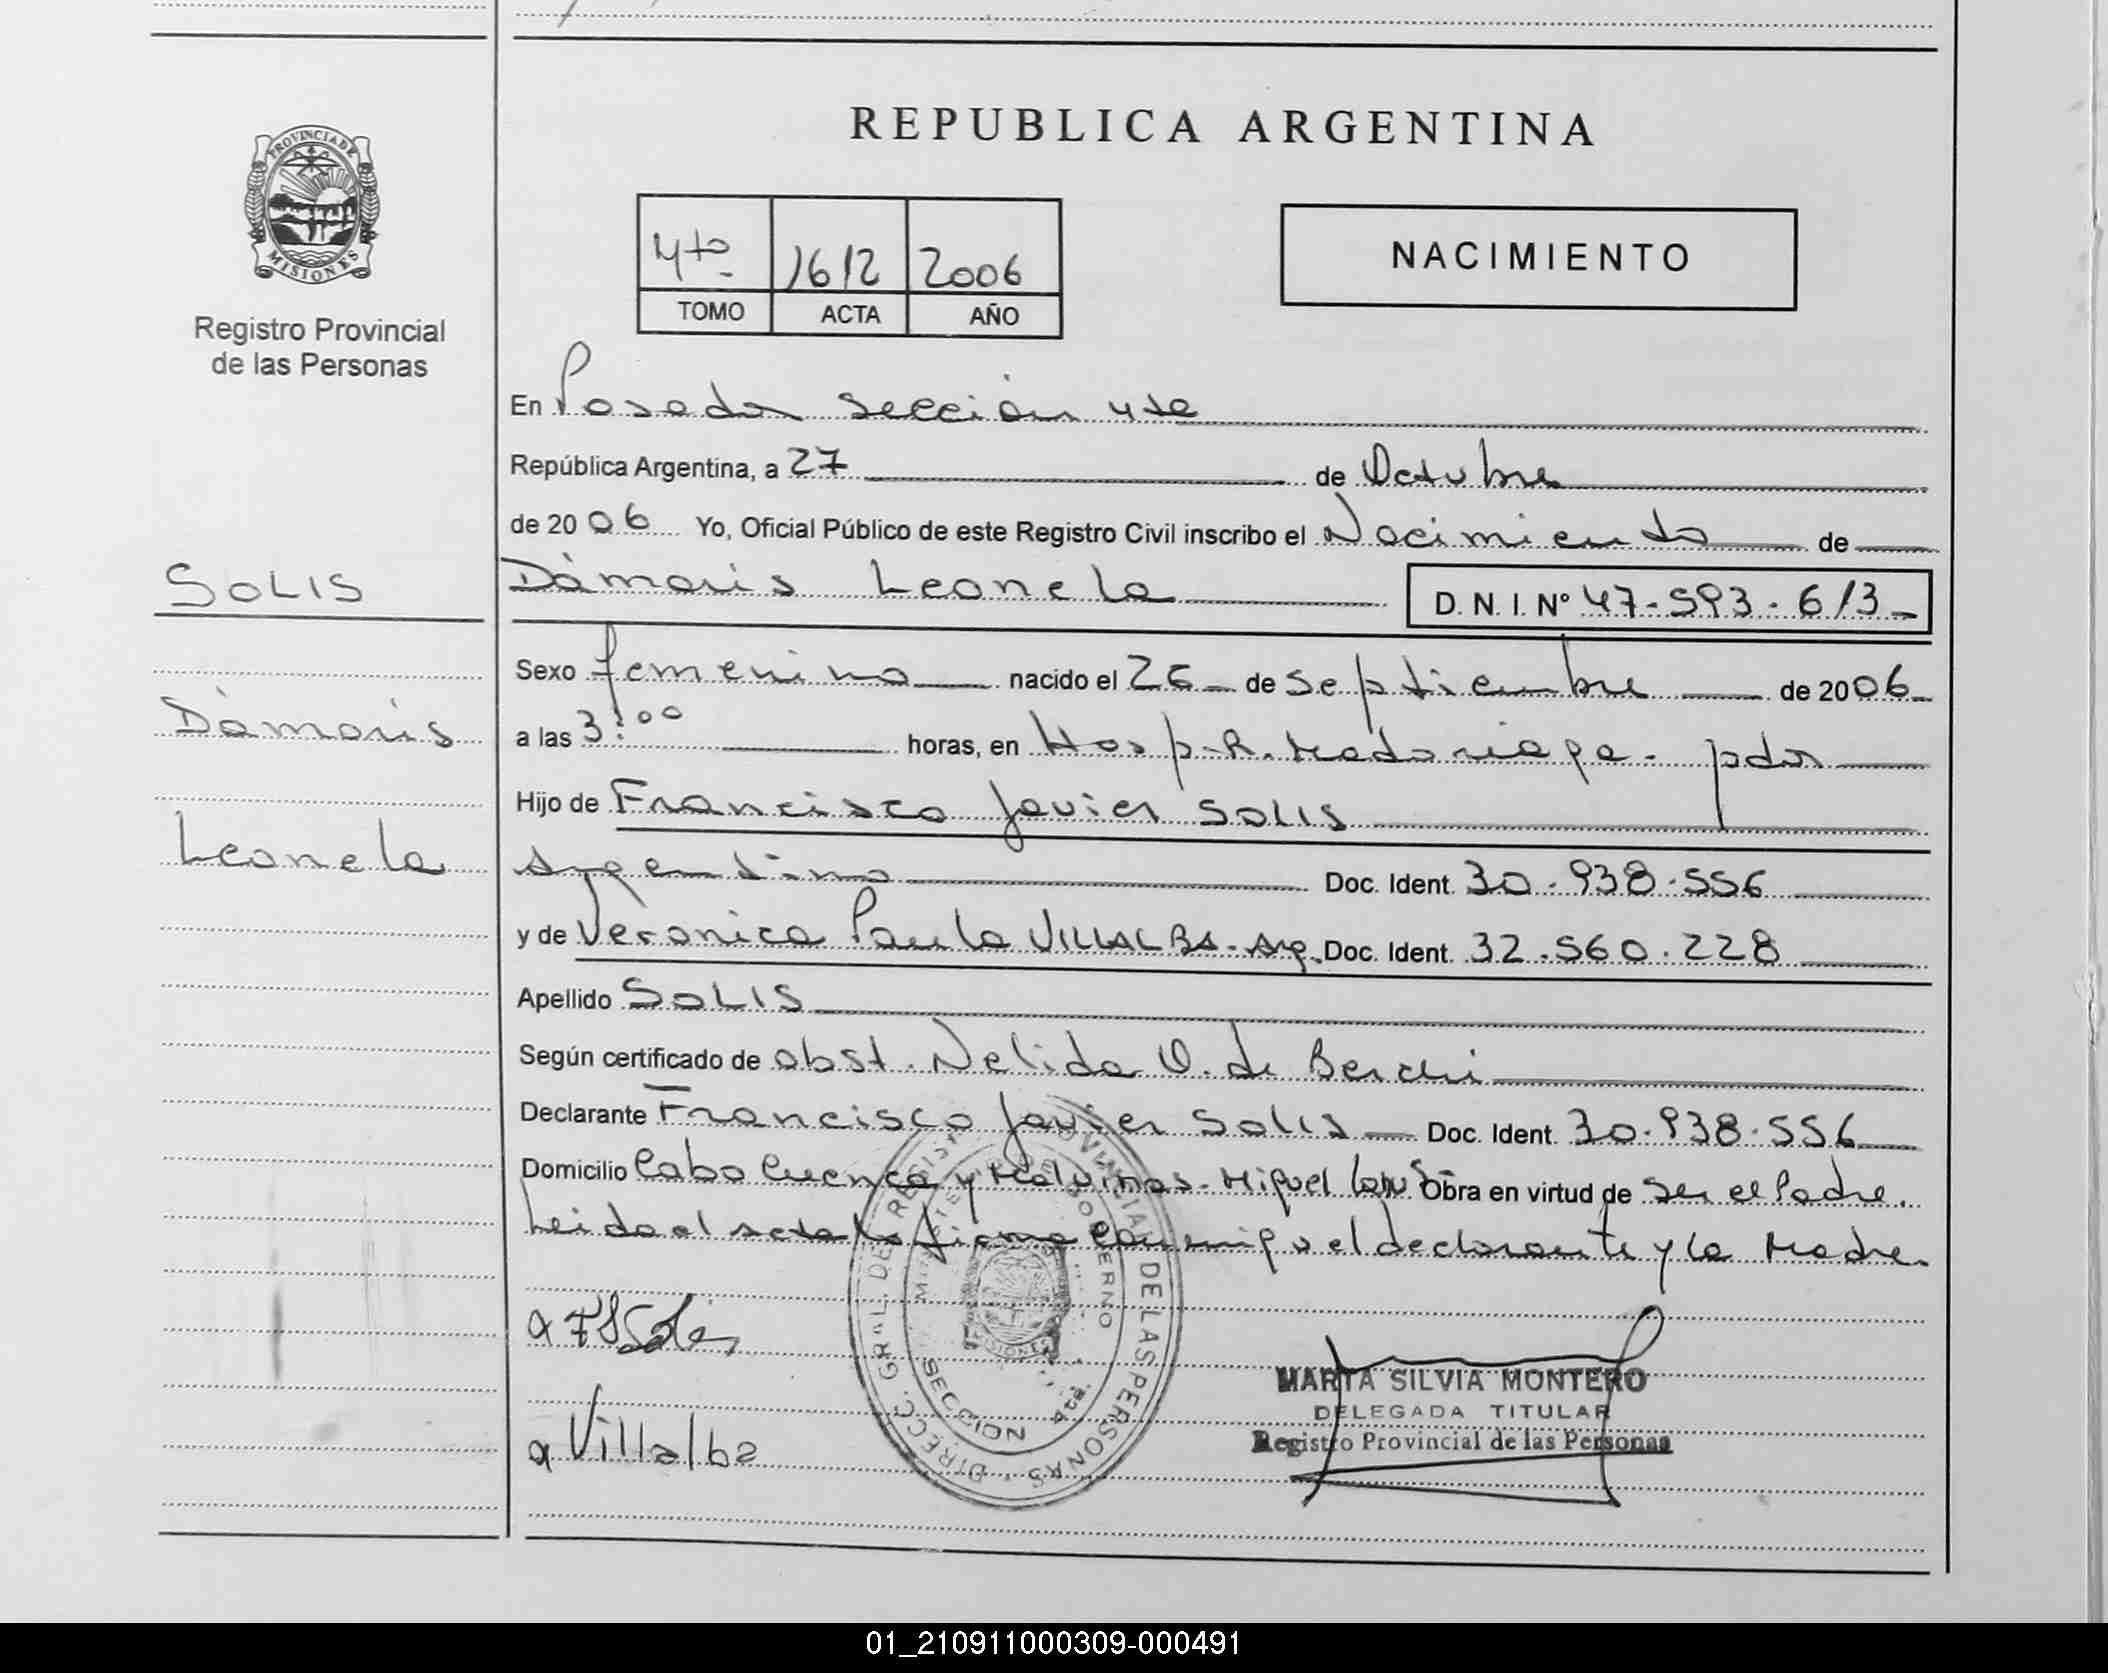 REPUBLICA ARGENTINA
PROVINCIA DE
MISIONES
Registro Provincial
de las Personas
4to 1612 2006
TOMO ACTA AÑO
NACIMIENTO
En Posadas sección 4ta
República Argentina, a 27 de Octubre
de 2006 Yo, Oficial Público de este Registro Civil inscribo el Nacimiento de
SOLIS
Dámaris Leonela D. N. I. Nº 47-593-613
Sexo femenino nacido el 26 de Septiembre de 2006
Dámaris
a las 3:00 horas, en Hosp. R. Madariaga. pdas
Hijo de Francisco Javier SOLIS
Leonela
Argentino Doc. Ident. 30.938.556
y de Veronica Paula VILLALBA. Arg. Doc. Ident. 32.560.228
Apellido SOLIS
Según certificado de obst. Nelida O. de Berchi
Declarante Francisco Javier Solis Doc. Ident. 30.938.556
Domicilio Cabo Cuenca y Malvinas. Miguel Lanús Obra en virtud de ser el Padre.
Leida el acta la firma conmigo el declarante y la Madre.
DIRECC. GRAL DE REGISTRO PROVINCIAL DE LAS PERSONAS
MINISTERIO DE GOBIERNO
MISIONES
SECCION 4ta.
Solis
Villalba
MARTA SILVIA MONTERO
DELEGADA TITULAR
Registro Provincial de las Personas
01_210911000309-000491